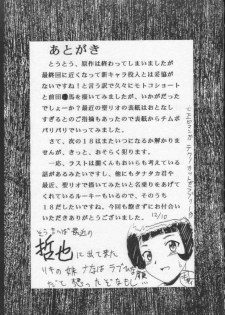 あとがき
とうとう、原作は終わってしまいましたが
最終回に近くなって新キャラ投入とは妥協が
ないですね！と言う訳で久々にモトコショート
と前田●馬を描いてみましたが、いかがだった
でしょうか？最近の聖リオの表紙はおとなし
すぎるとのご指摘もあったので表紙からチムポ
バリバリでいってみました。
さて、次の１８はまたいつになるか解かりませ
んが、きっと、おそらく犯ります。
一応、ラストは闇くんもおいらも考えている
話があるみたいですし、他にもタナタカ君や
最近、聖リオで描いてみたいと名乗りをあげて
くれているルーキーもいるので、まだまだ18は
続きそうですね、今回も飽きずにお付合い
いただきありがとうございました。
12/10
そういえば最近の
哲也に出て来た
リキの妹ナナはラブな